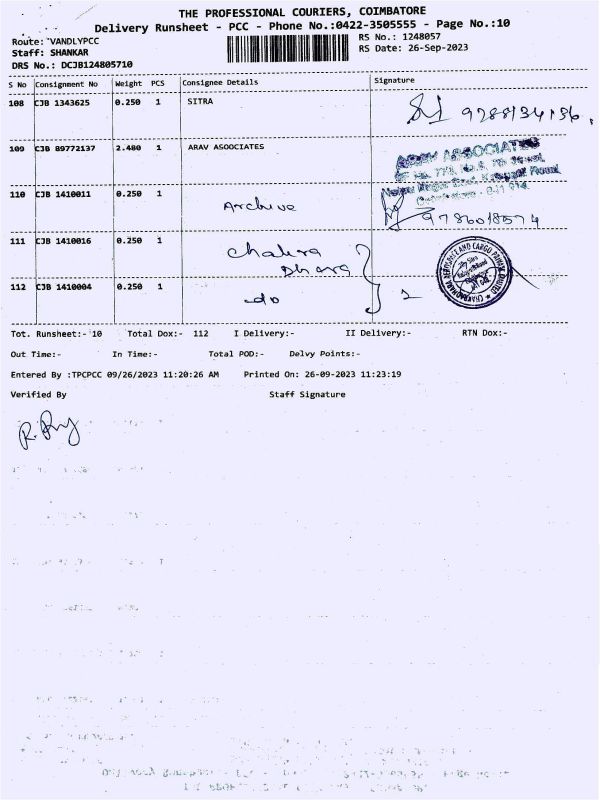 THE PROFESSIONAL COURIERS, COIMBATORE
Delivery Runsheet - PCC - Phone No.:0422-3505555 - Page No.:10
Route: VANDLYPCC
RS No.: 1248057
Staff: SHANKAR
RS Date: 26-Sep-2023
DRS No.: DCJB124805710
S No Consignment No Weight PCS Consignee Details Signature
108 CJB 1343625 0.250 1 SITRA
109 CJB 89772137 2.480 1 ARAV ASOOCIATES
ARAV ASSOCIATES
110 CJB 1410011 0.250 1 Archive
9786018574
111 CJB 1410016 0.250 1 Chakra
Dhara
112 CJB 1410004 0.250 1 do 2
Tot. Runsheet:- 10 Total Dox:- 112 I Delivery:- II Delivery:- RTN Dox:-
Out Time:- In Time:- Total POD:- Delvy Points:-
Entered By :TPCPCC 09/26/2023 11:20:26 AM Printed On: 26-09-2023 11:23:19
Verified By Staff Signature